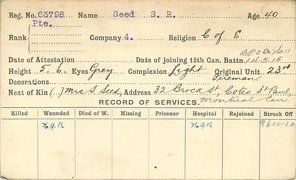 Reg. No. 63798 Name Seed S. R. Age 40
Rank Pte. Company 4. Religion C of E
Date of Attestation Date of joining 15th Can. Battn.
Height 5. 6. Eyes Gray Complexion Light Original Unit 23rd
Decorations Fireman
Next of Kin Mrs S Seed, Address 32 Brock St, Cote St Paul,
Montreal Can
RECORD OF SERVICES
Killed Wounded Died of W. Missing Prisoner Hospital Rejoined Struck Off